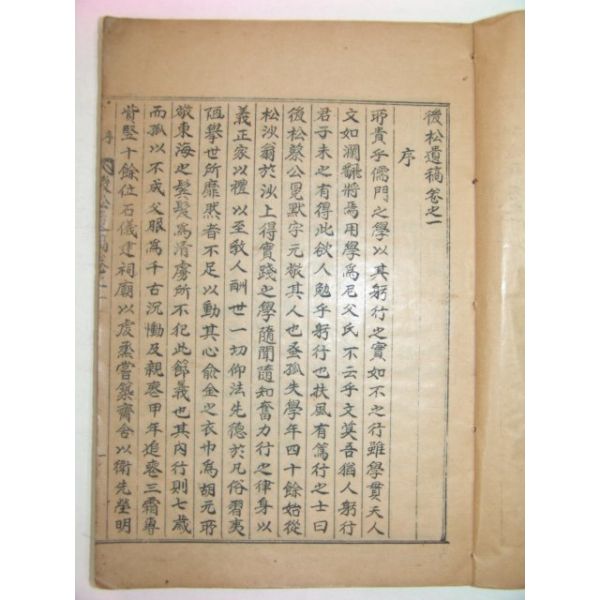 後松遺稿卷之一
序
所貴乎儒門之學以其躬行之實如不之行雖學貫天人
文如瀾飜將焉用學爲尼父氏不云乎文莫吾猶人躬行
君子未之有得此欲人勉乎躬行也扶風有篤行之士曰
後松蔡公冕默字元敬其人也蚤孤失學年四十餘始從
松沙翁於沙上得實踐之學隨聞隨知奮力行之律身以
義正家以禮以至敎人酬世一切仰法先德於凡俗習夷
陋擧世所靡然者不足以動其心兪金之衣巾爲胡元所
敬東海之鬓髮爲淸虜所不犯此節義也其內行則七歲
而孤以不成父服爲千古沉慟及親喪甲年追喪三霜專
貲竪十餘位石儀建祠廟以虔烝嘗築齊舍以衛先塋明
序 後松遺稿卷之一